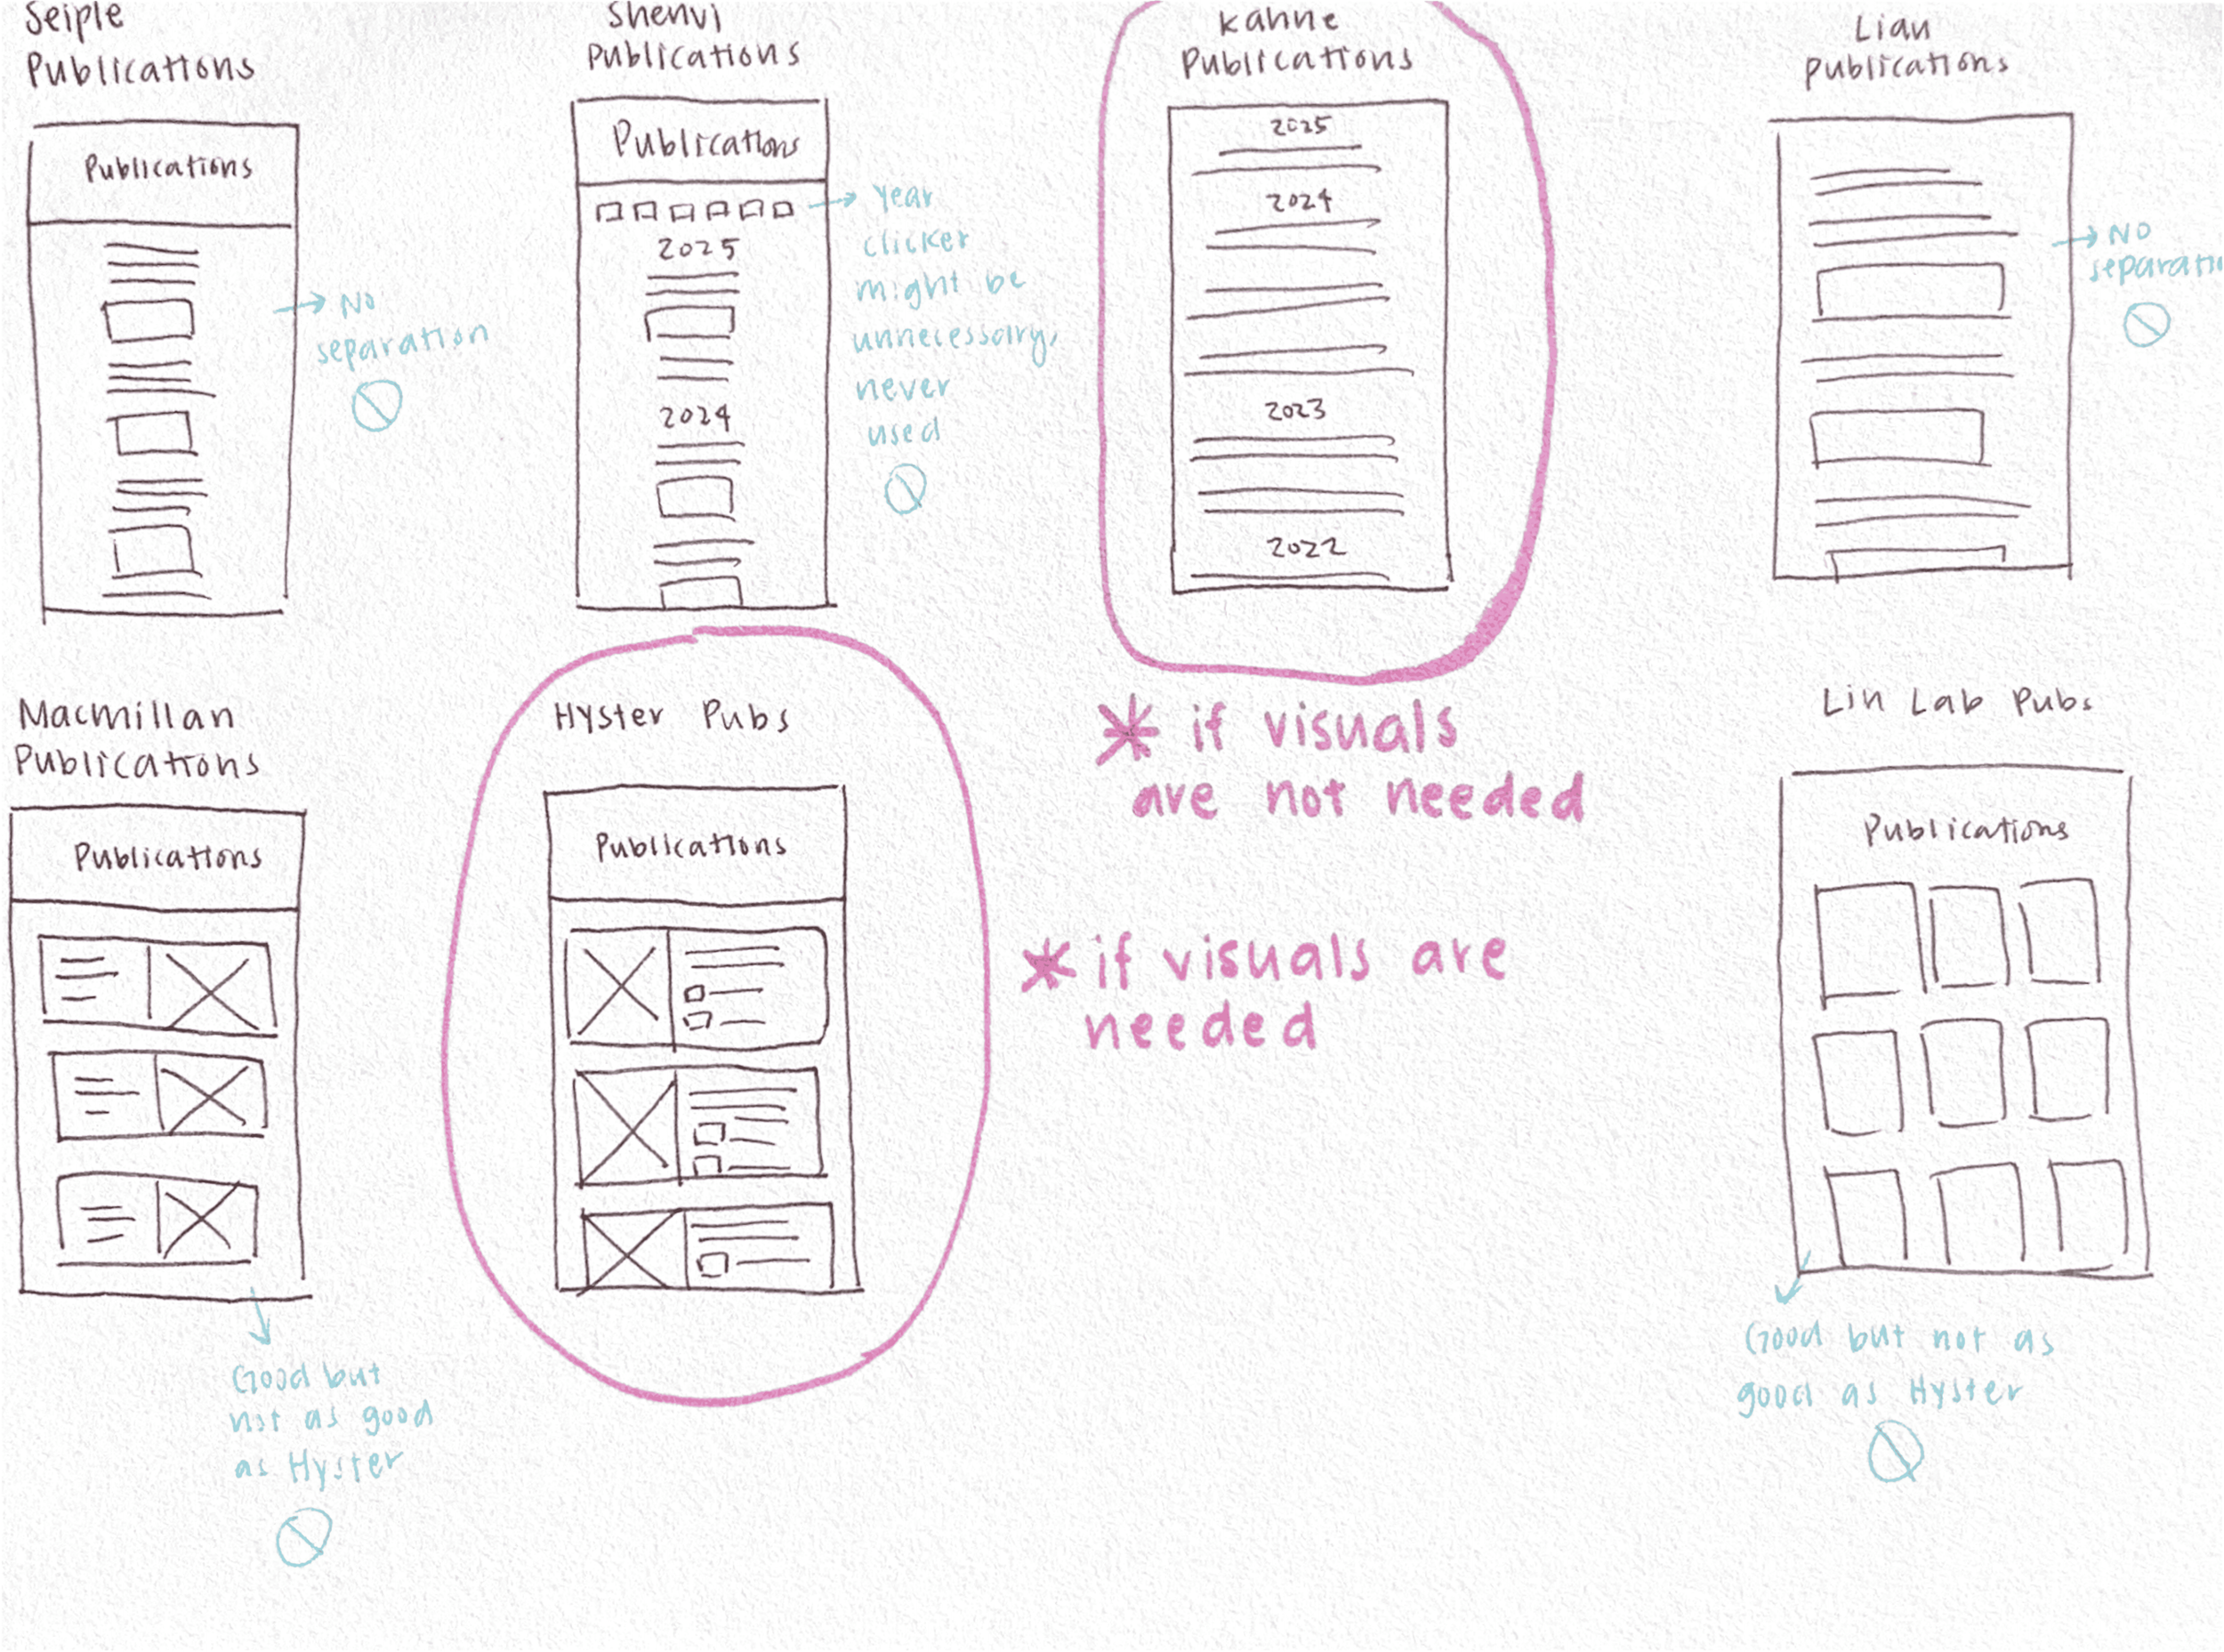 Seiple
Publications
Publications
→ No
separation
Shenvi
Publications
Publications
2025
2024
→ Year
clicker
might be
unnecessary,
never
used
Kahne
Publications
2025
2024
2023
2022
* if visuals
are not needed
Lian
Publications
→ No
Macmillan
Publications
Publications
Good but
not as good
as Hyster
Hyster Pubs
Publications
* if visuals are
needed
Lin Lab Pubs
Publications
Good but not as
good as Hyster